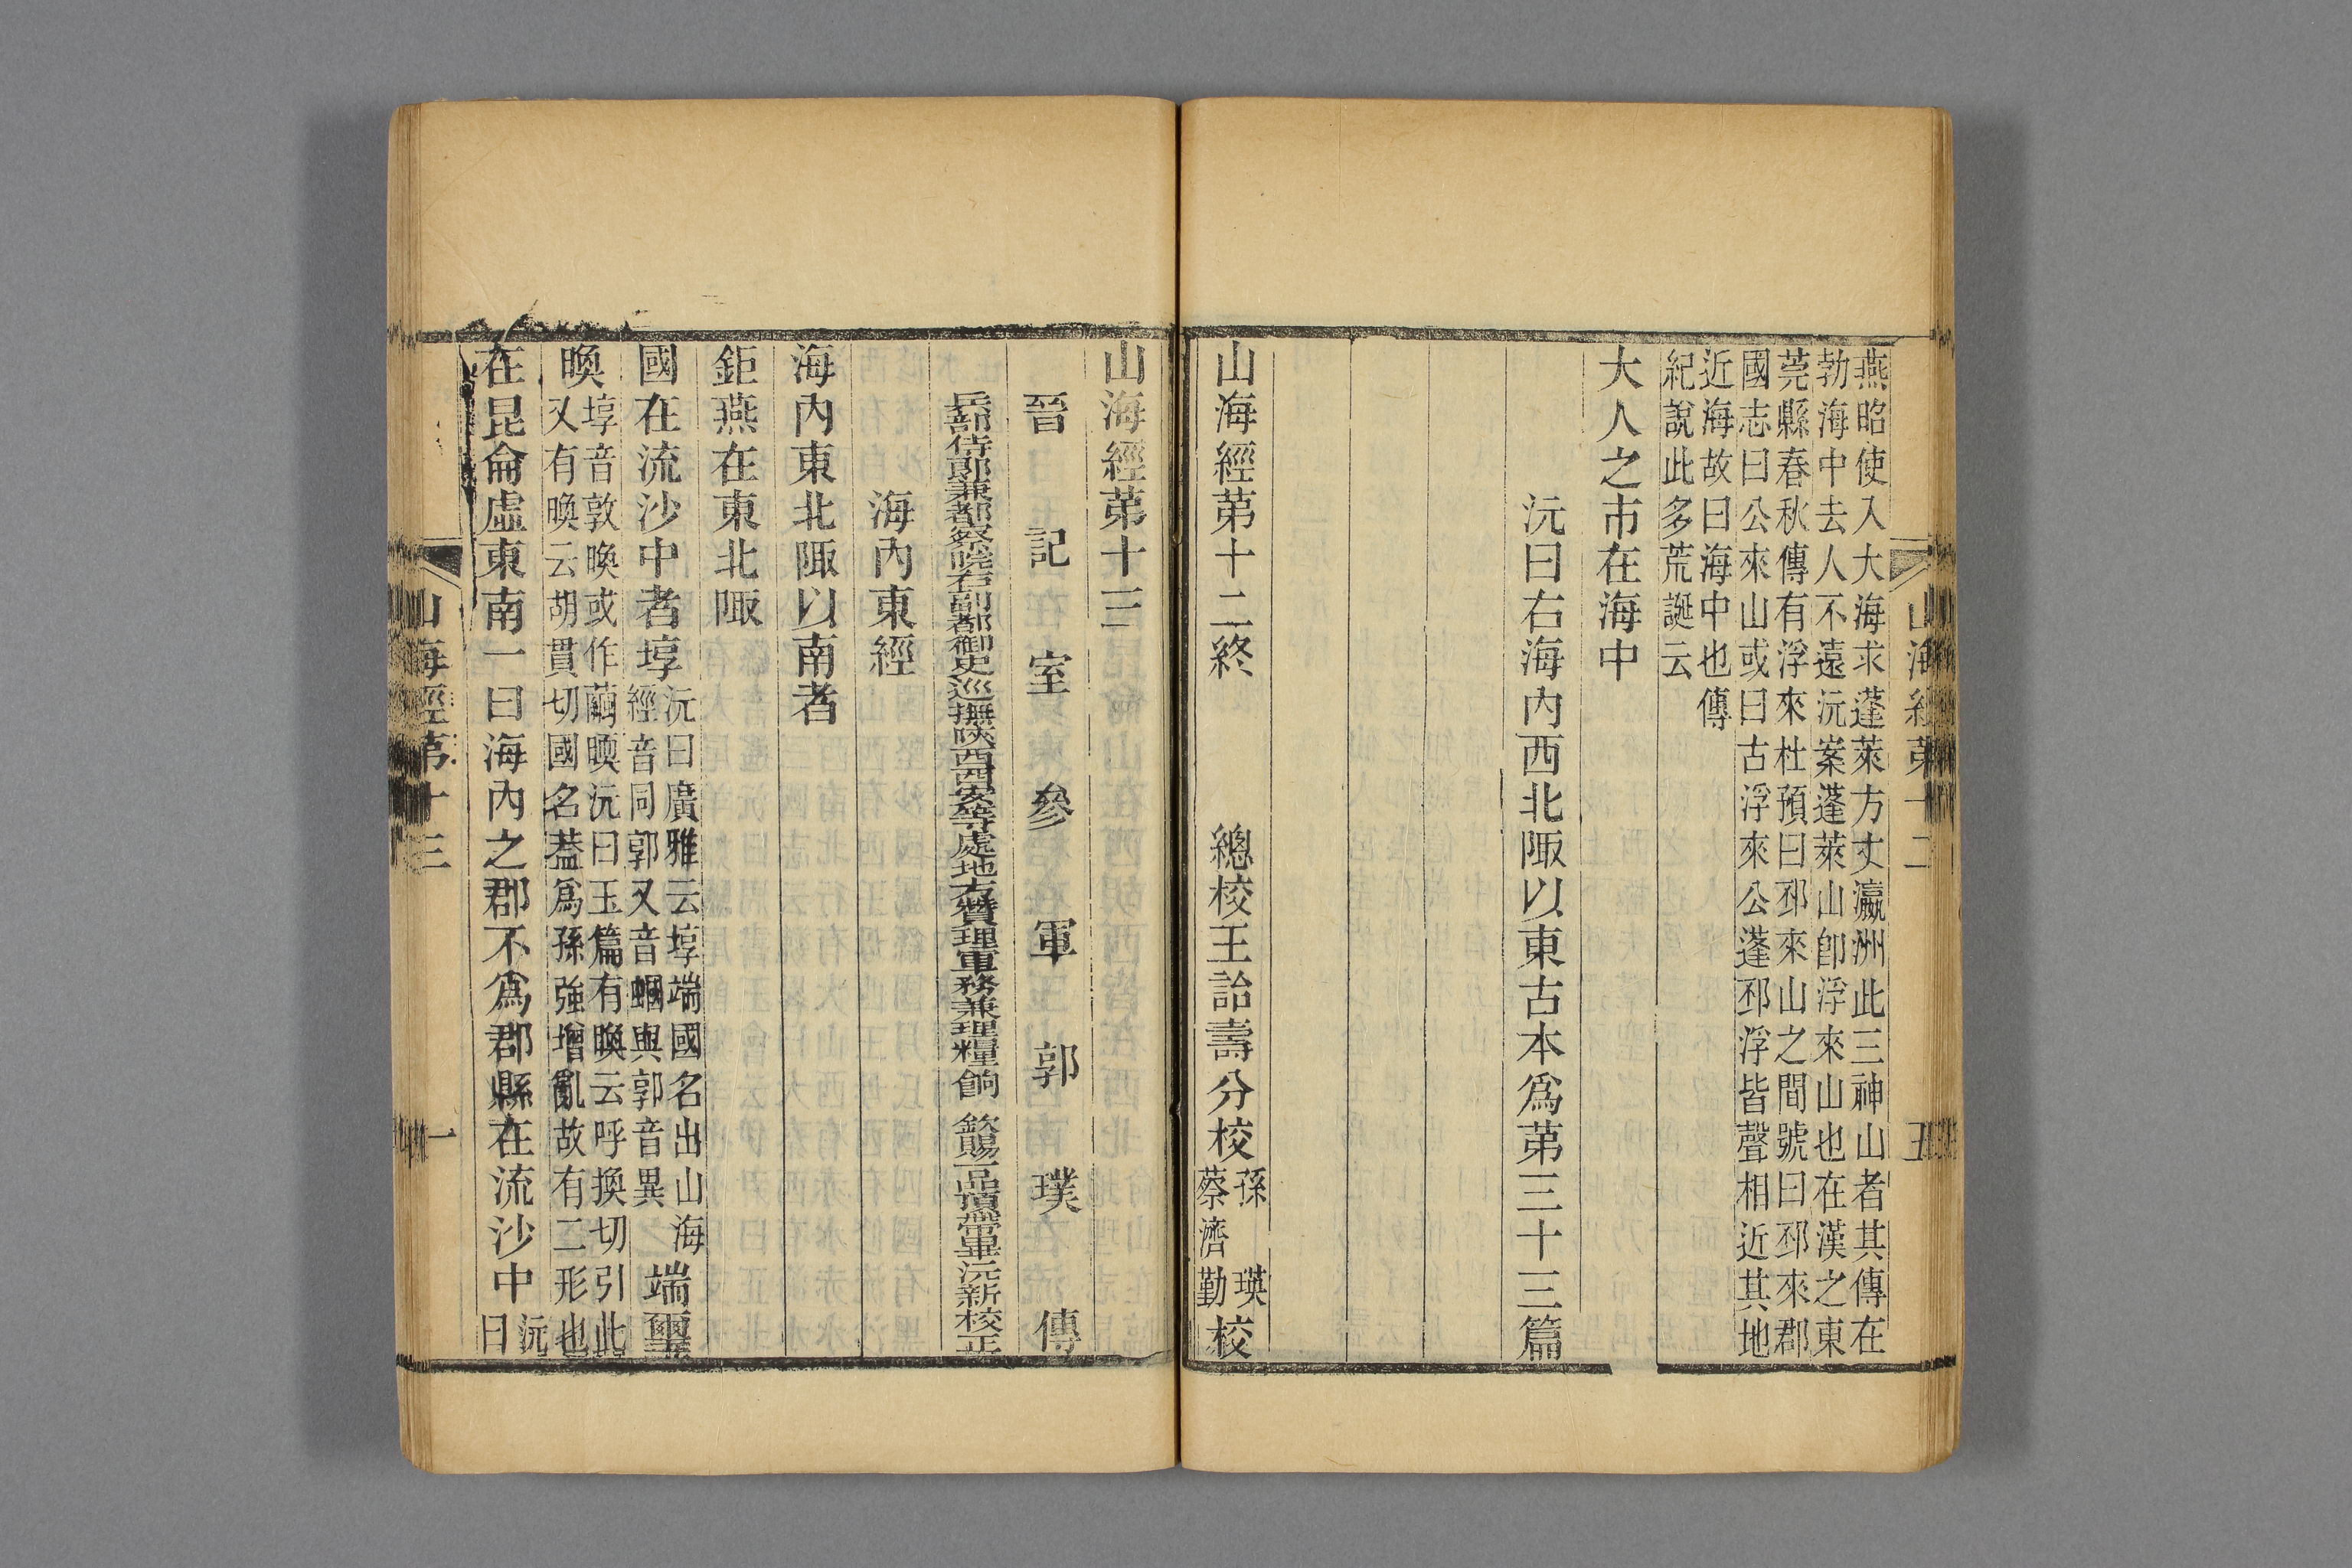 山海經第十二
五
燕昭使入大海求蓬萊方丈瀛洲此三神山者其傳在
勃海中去人不遠沅案蓬萊山卽浮來山也在漢之東
莞縣春秋傳有浮來杜預曰邳來山之間號曰邳來郡
國志曰公來山或曰古浮來公蓬邳浮皆聲相近其地
近海故曰海中也傳
紀說此多荒誕云
大人之市在海中
沅曰右海內西北陬以東古本爲第三十三篇
山海經第十二終 總校王詒壽分校
孫瑛
蔡濟勤
校
山海經第十三
晉記室參軍郭璞傳
兵部侍郎兼都察院右副都御史巡撫陝西西安等處地方贊理軍務兼理糧餉 欽賜一品頂帶畢沅新校正
海內東經
海內東北陬以南者
鉅燕在東北陬
國在流沙中者埻
沅曰廣雅云埻端國名出山海
經音同郭又音蟈與郭音異
端璽
㬇
埻音敦㬇或作繭㬇沅曰玉篇有㬇云呼換切引此
又有㬇云胡貫切國名葢爲孫強增亂故有二形也
在昆侖虛東南一曰海內之郡不爲郡縣在流沙中
沅
曰
山海經第十三
一